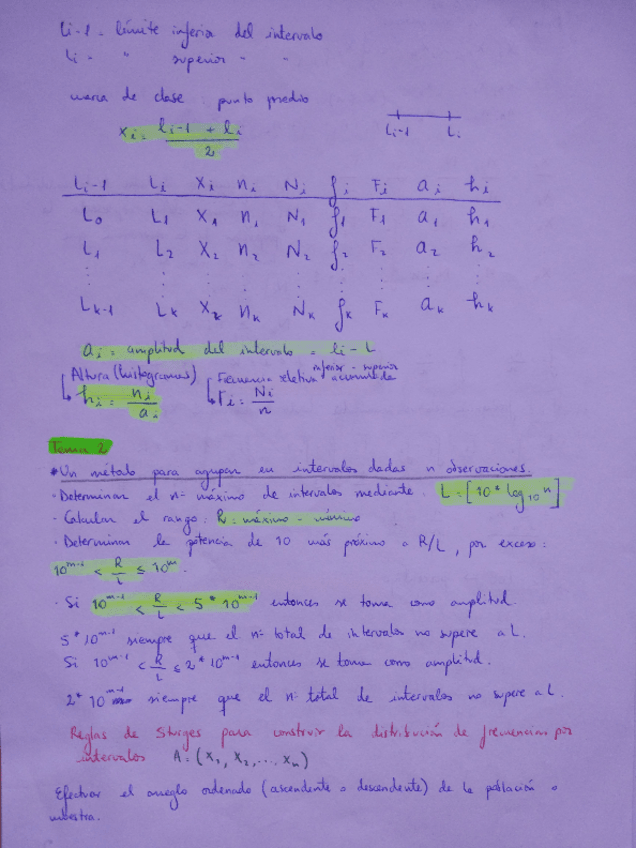 Li-1 = límite inferior del intervalo
Li = " superior " "
marca de clase punto medio
xi = (li-1 + li) / 2
Li-1 Li
Li-1 Li Xi ni Ni fi Fi ai hi
L0 L1 X1 n1 N1 f1 F1 a1 h1
L1 L2 X2 n2 N2 f2 F2 a2 h2
⋮ ⋮ ⋮ ⋮ ⋮ ⋮ ⋮ ⋮ ⋮
Lk-1 Lk Xk nk Nk fk Fk ak hk
ai = amplitud del intervalo = li - L
inferior - superior
Altura (histogramas) Frecuencia relativa acumulada
hi = ni / ai Fi = Ni / n
Tema 2
* Un método para agrupar en intervalos dadas n observaciones.
· Determinar el nº máximo de intervalos mediante. L = [10 * log10 n]
· Calcular el rango: R = máximo - mínimo
· Determinar la potencia de 10 más próximo a R/L, por exceso:
10^m-1 < R/L ≤ 10^m.
· Si 10^m-1 < R/L < 5*10^m-1 entonces se toma como amplitud.
5*10^m-1 siempre que el nº total de intervalos no supere a L.
Si 10^m-1 < R/L ≤ 2*10^m-1 entonces se toma como amplitud.
2*10^m-1 siempre que el nº total de intervalos no supere a L.
Reglas de Sturges para construir la distribución de frecuencias por
intervalos A = (x1, x2, ... xn)
Efectuar el arreglo ordenado (ascendente o descendente) de la población o
muestra.